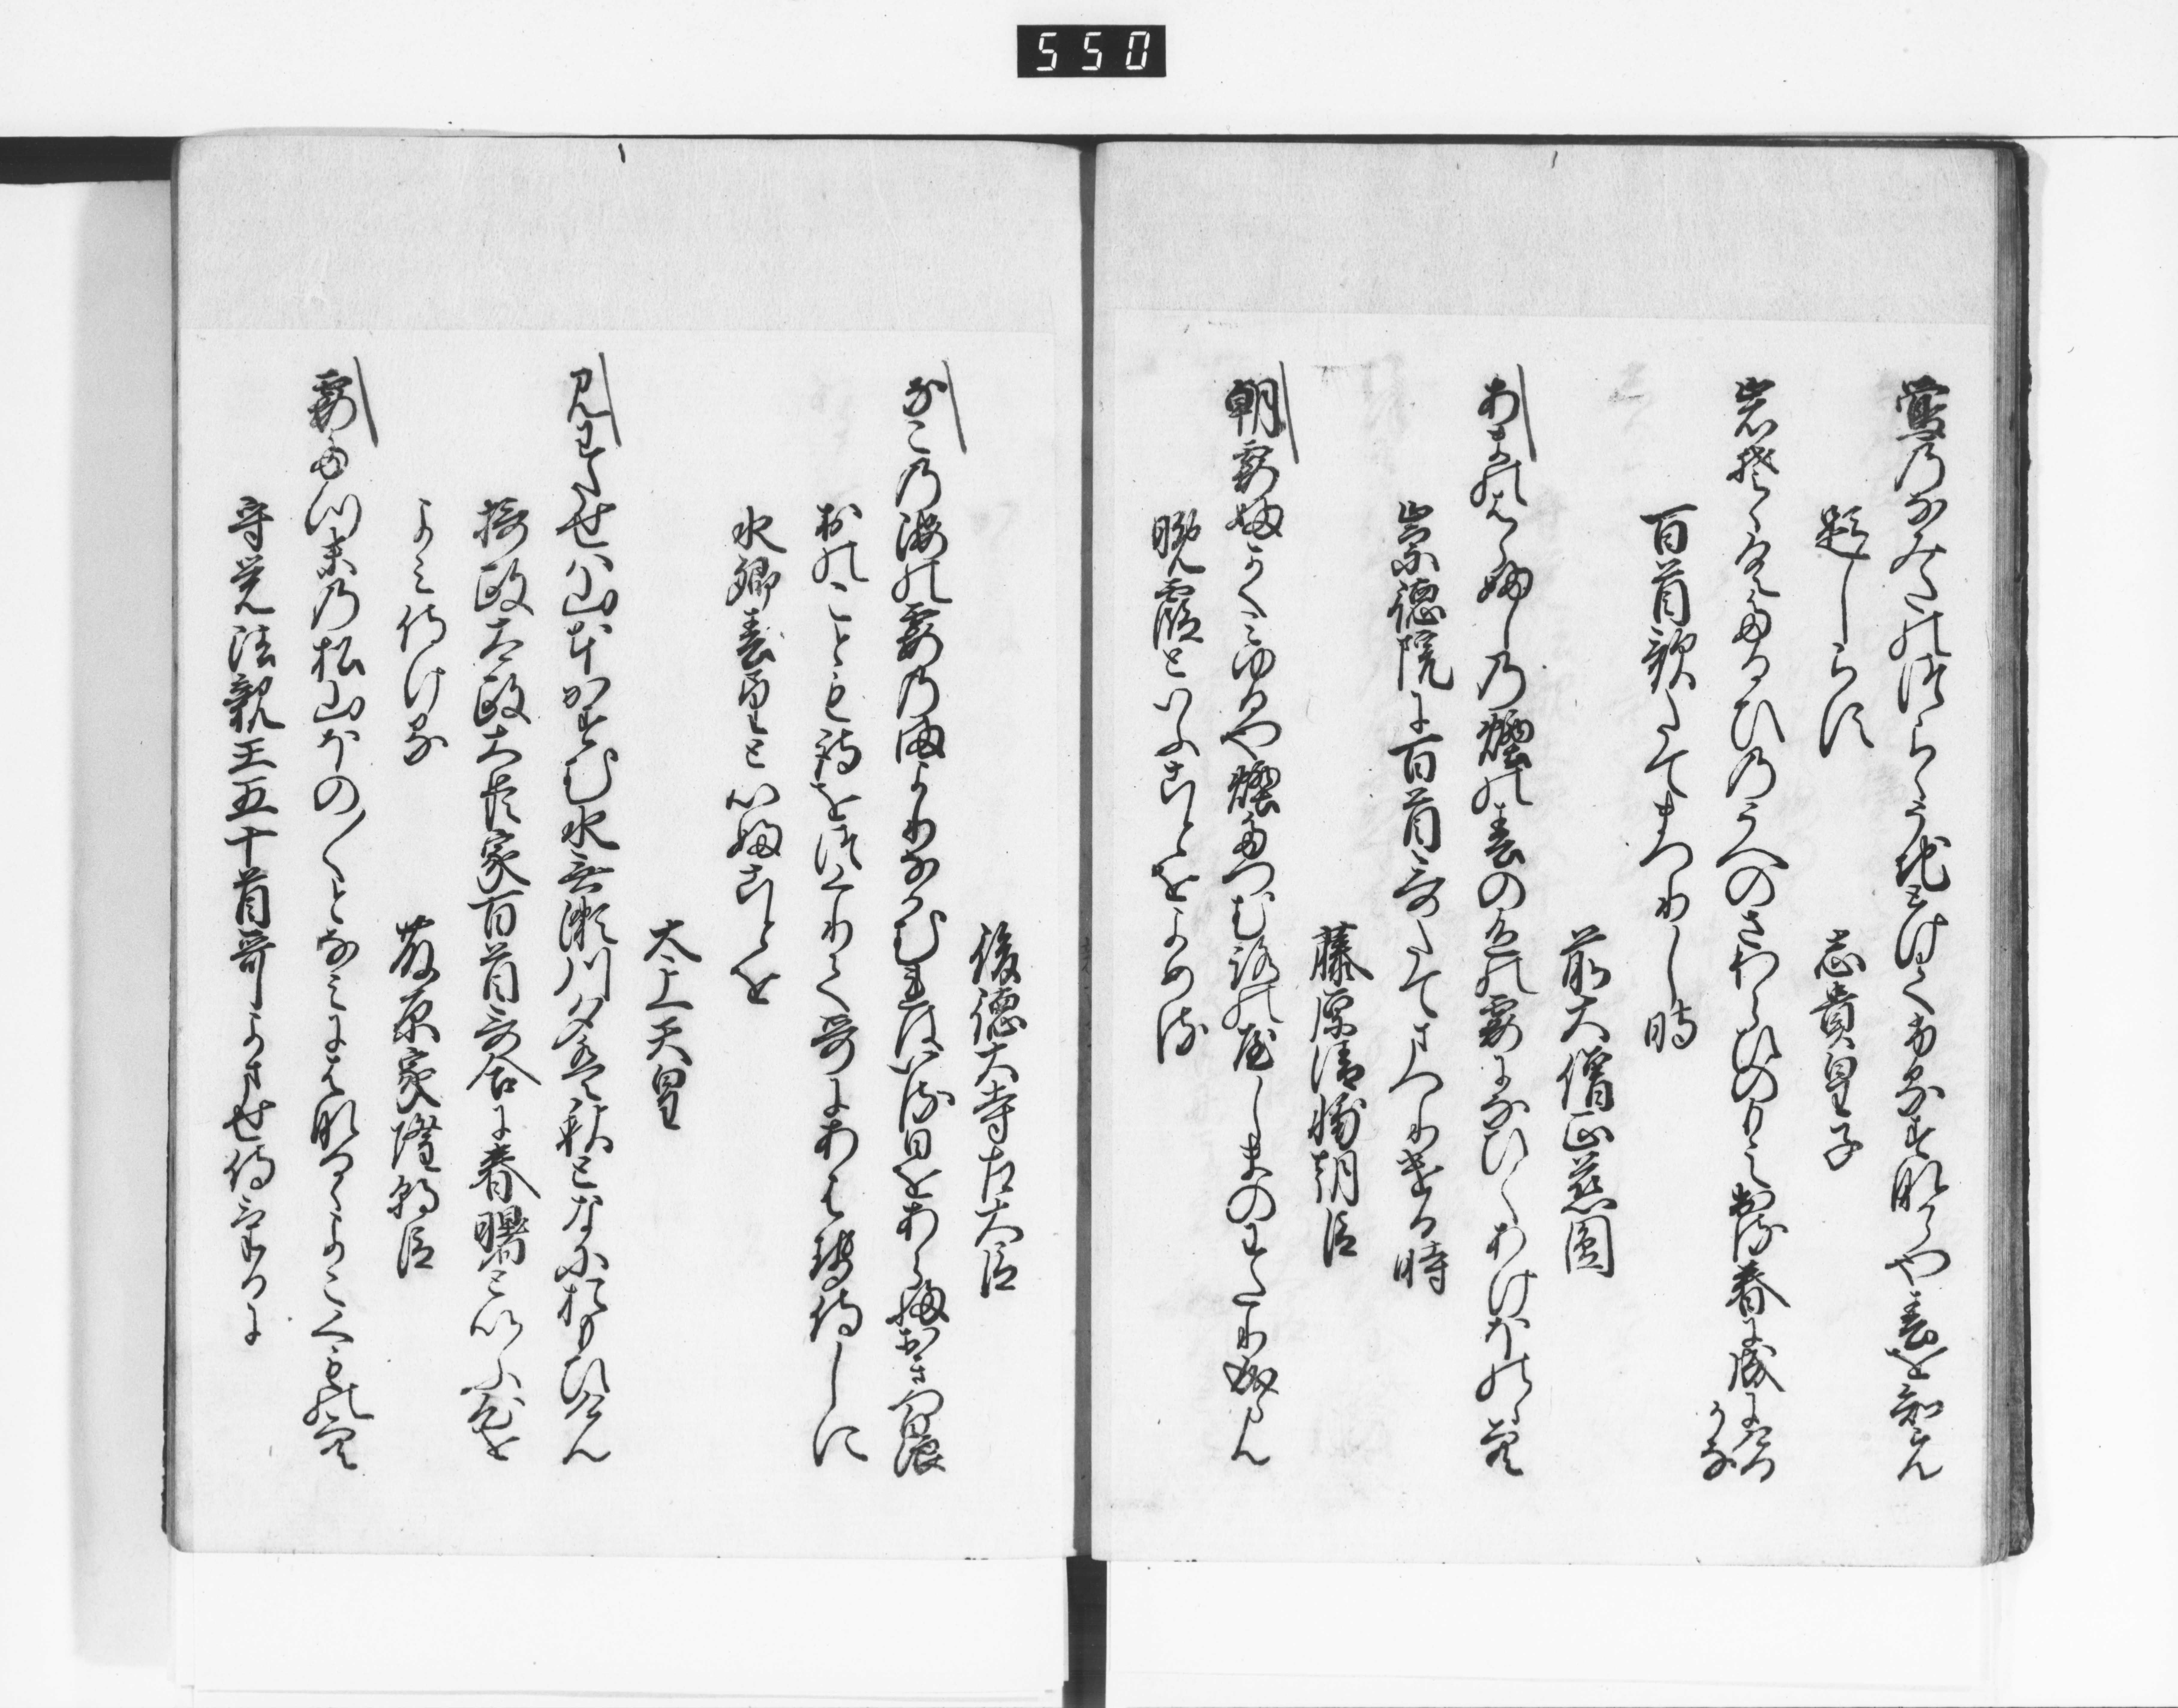 550
鶯のなみたのつらゝうちとけてふるすなからや春を知らん
題しらす
志貴皇子
岩そゝくたるひのうへのさわらひのもえ出る春に成にける
かな
百首歌たてまつりし時
前大僧正慈圓
あまのはらふしの煙の春の色の霞になひくあけほのゝ空
崇徳院に百首哥たてまつりける時
藤原清輔朝臣
朝霞ふかくみゆるや煙たつむろの屋しまのわたり成らん
晩霞といふことをよめる
後徳大寺左大臣
なこの海の霞のまよりなかむれはいる日をあらふおきつ白浪
おのこともも詩をつくりて哥にあはせ侍しに
水郷春望といふことを
太上天皇
見わたせは山本かすむ水無瀬川夕へは秋となにおもひけん
摂政太政大臣家百首哥合に春曙といふ心を
よみ侍ける
藤原家隆朝臣
霞たつ末の松山ほの／＼となみにはなるゝよこくもの空
守覚法親王五十首哥よませ侍けるに